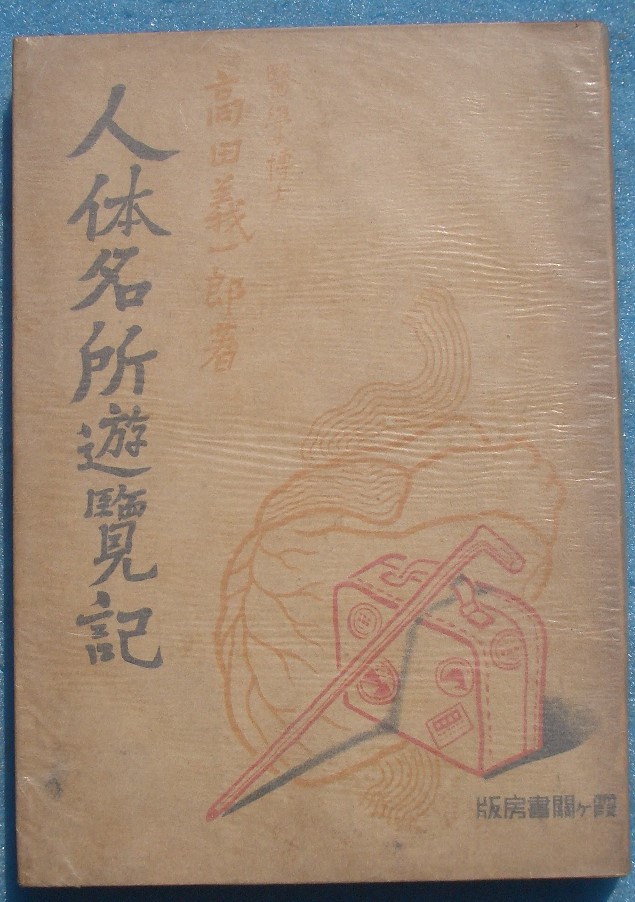 醫學博士
高田義一郎著
人体名所遊覽記
霞ヶ關書房版